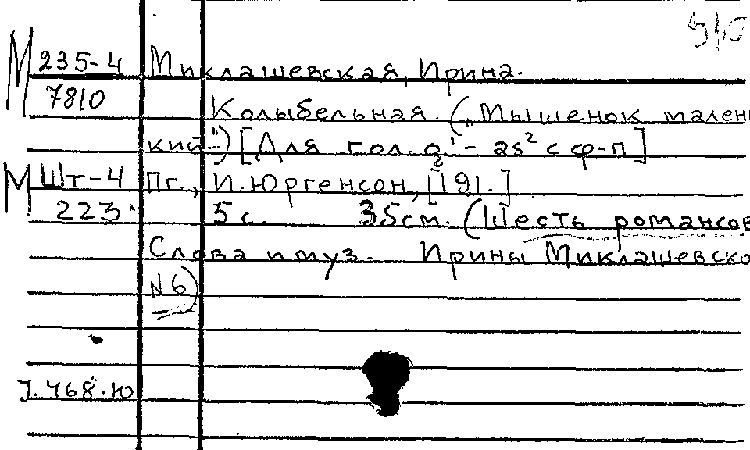 М 235-4 Миклашевская, Ирина.
7810 Колыбельная („Мышенок малень
кий“) [Для гол. - as² с ф-п]
М Шт-4 Пг., И. Юргенсон, [191.]
223. 5 с. 35 см. (Шесть романсов
Слова и муз. Ирины Миклашевско
№6)
468.Ю